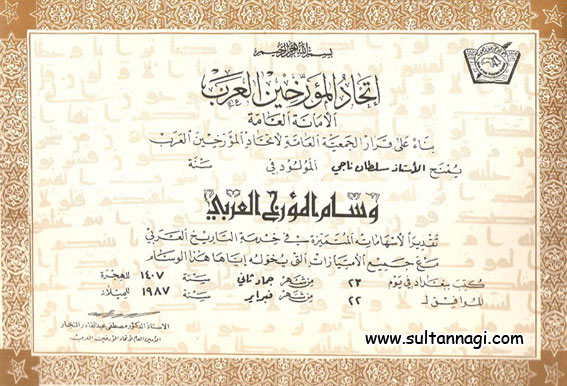 بسم الله الرحمن الرحيم
اتحاد المؤرخين العرب
الأمانة العامة
بناءً على قرار الجمعية العامة لاتحاد المؤرخين العرب
يمنح الأستاذ سلطان ناجي المولود في سنة
وسام المؤرخ العربي
تقديراً لاسهاماته المتميزة في خدمة التاريخ العربي
مع جميع الامتيازات التي يخوله إياها هذا الوسام
كتب ببغداد في يوم ٢٣ من شهر جماد ثاني سنة ١٤٠٧ للهجرة
الموافق لـ ٢٢ من شهر فبراير سنة ١٩٨٧ للميلاد
الاستاذ الدكتور مصطفى عبدالقادر النجار
الأمين العام لاتحاد المؤرخين العرب
www.sultannagi.com